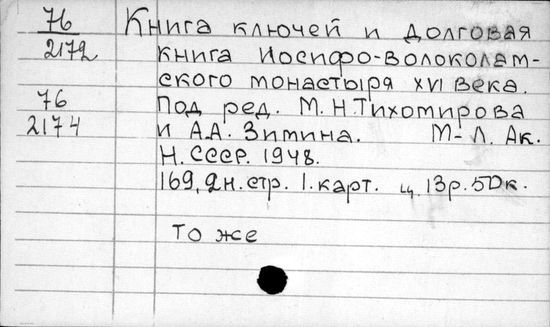 76 Книга ключей и долговая
2172 книга Иосифо-волоколам-
ского монастыря XVI века.
76 Под ред. М.Н.Тихомирова
2174 и А.А. Зимина. М-Л. Ак.
Н. СССР. 1948.
169, 2н.стр. 1.карт. ц. 13р.50к.
То же